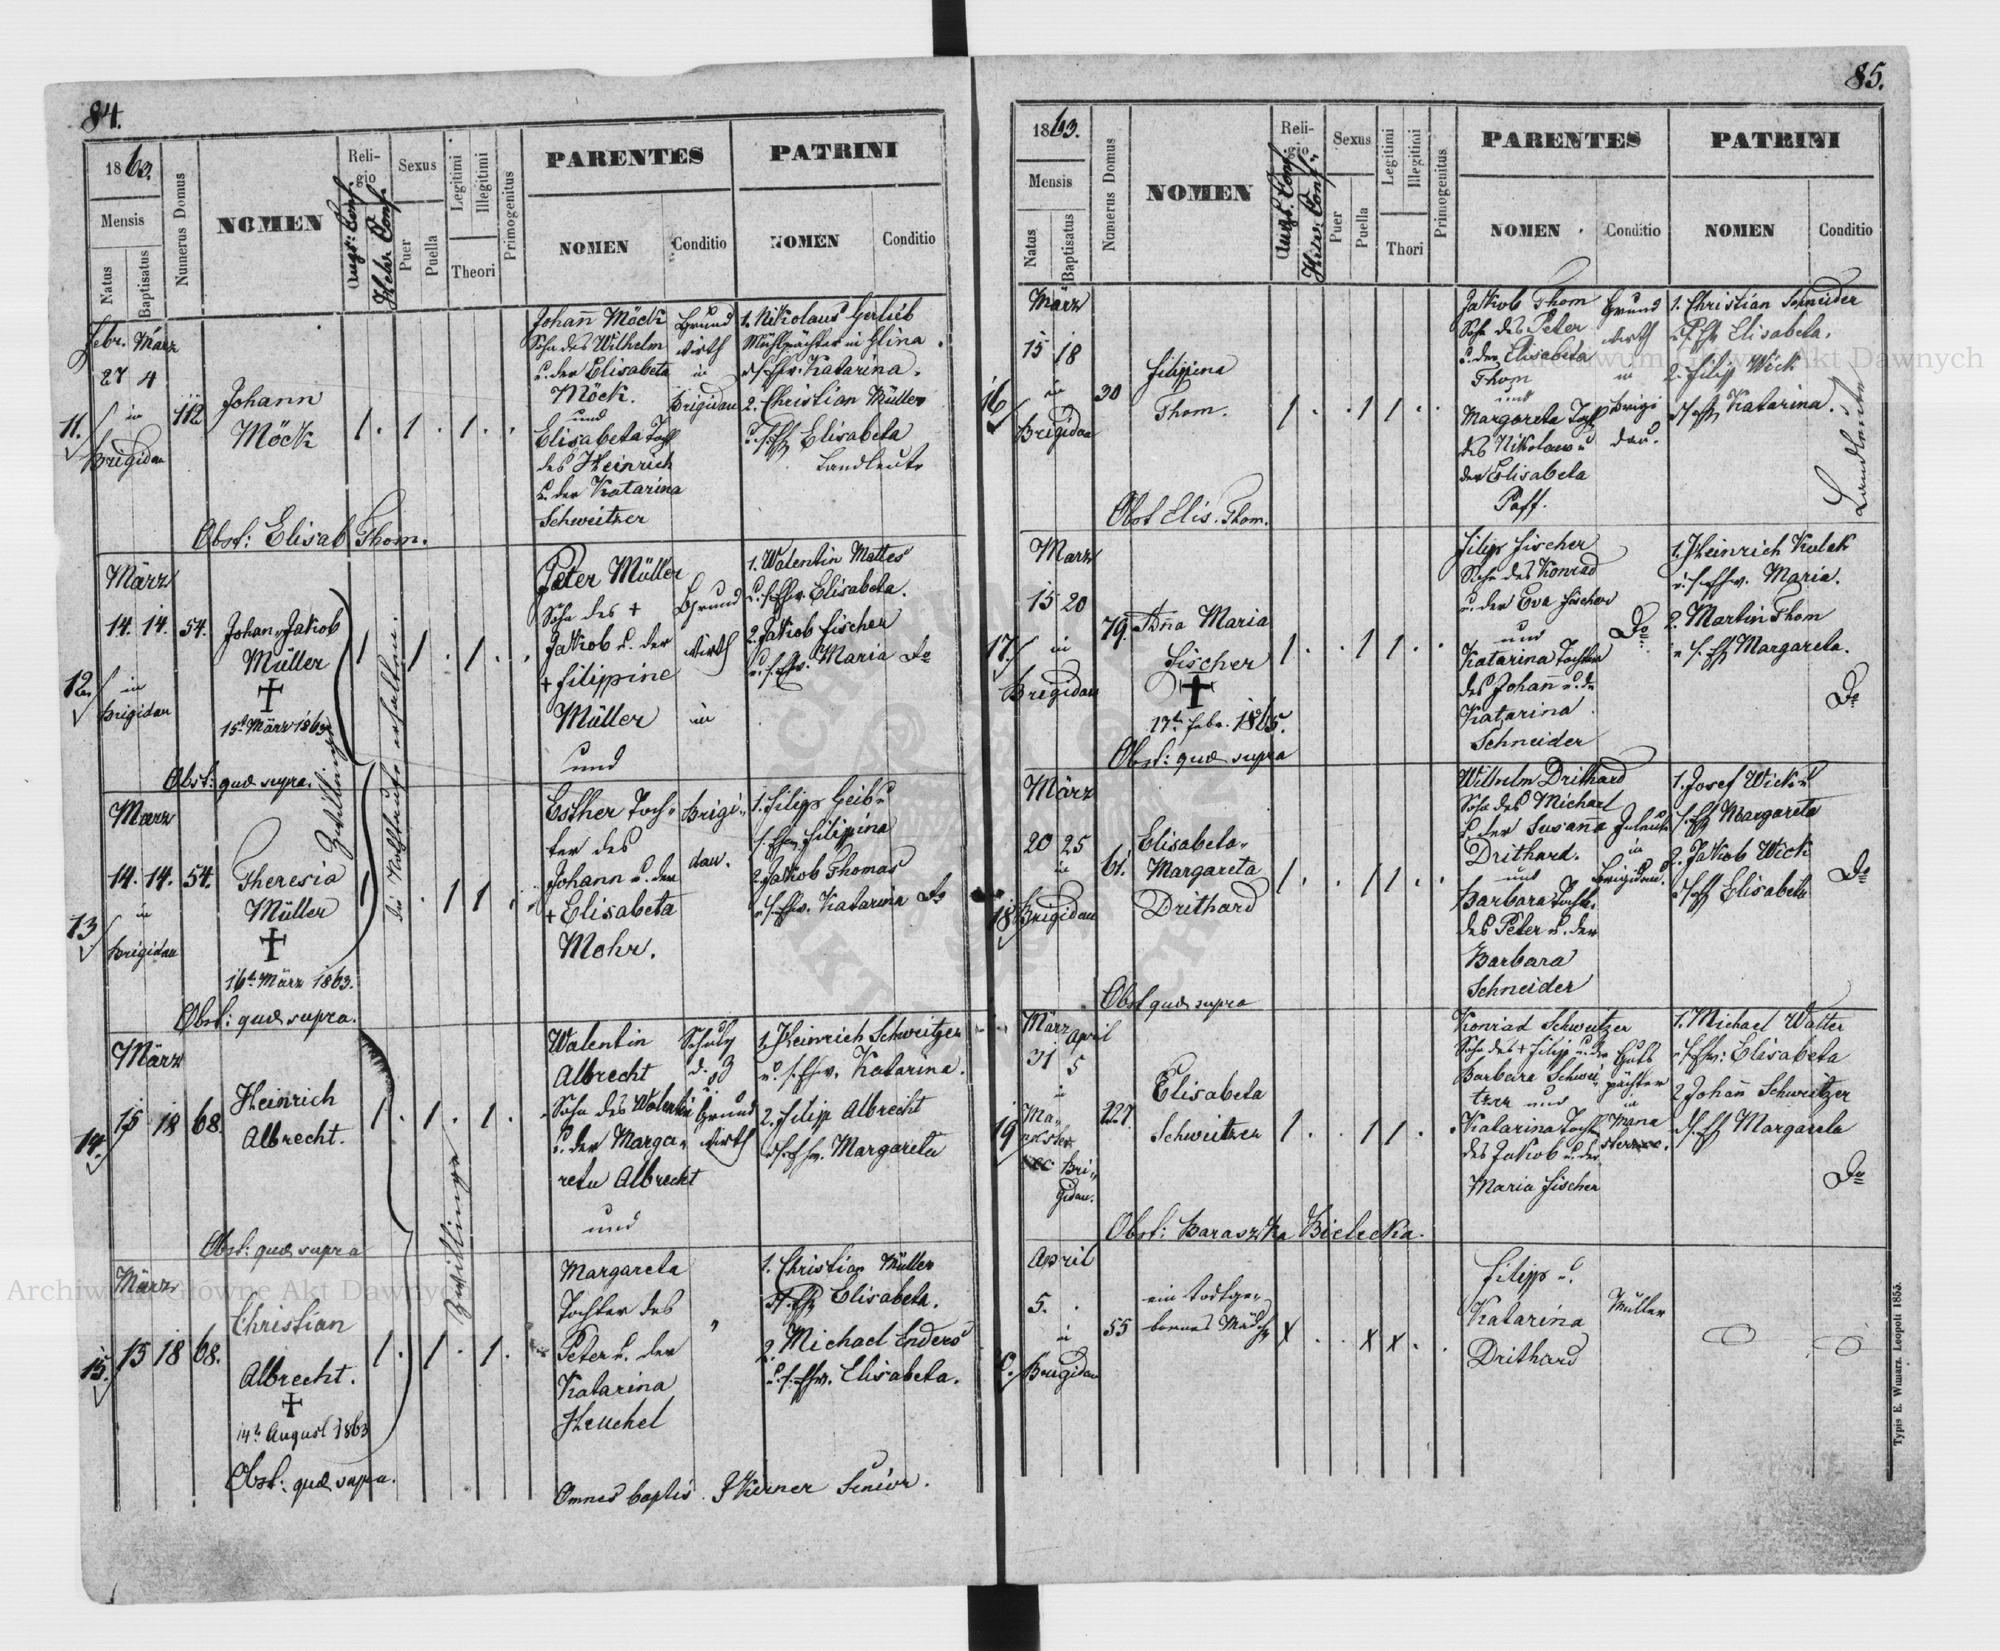 84.
1863.
Mensis
Natus
Baptisatus
Numerus Domus
NOMEN
Religio
Augs: Conf.
Helv. Conf.
Sexus
Puer
Puella
Legitimi
Illegitimi
Theori
Primogenitus
PARENTES
NOMEN
Conditio
PATRINI
NOMEN
Conditio
11.
Febr. März
27 4
in
Brigidau
112
Johann
Möck
1 . 1 . 1 . .
Johann Möck
Sohn des Wilhelm
u. der Elisabeta
Möck.
und
Elisabeta
des Heinrich
u. der Katarina
Schweitzer
Grund
wirth
in
Brigidau
1. Nikolaus Gerlieb
Mühlpächter in Glina
Katarina.
2. Christian Müller
Elisabeta
Landleute
Obst: Elisab Thom.
12.
März
14. 14.
in
Brigidau
54.
Johan Jakob
Müller
15t März 1863
1 1 . 1 . .
Peter Müller
Sohn des +
Jakob u. der
+ Filippine
Müller
und
Grund
wirth
in
1. Walentin Mattes
Elisabeta.
2. Jakob Fischer
Maria Do
Obst: quae supra.
Zwillinge
13
März
14. 14.
in
Brigidau
54.
Theresia
Müller
16t März 1863.
1 . 1 1 .
Esther Toch-
ter des
Johann u. der
+ Elisabeta
Mohr.
Brigi-
dau.
1. Filipp Geib u
Filippina
2. Jakob Thomas
Katarina Do
Obst: quae supra.
14.
März
15 18
68
Heinrich
Albrecht.
1 . 1 . 1 .
Walentin
Albrecht
Sohn des Walentin
u. der Marga-
reta Albrecht
und
Grund
wirth
1. Heinrich Schweitzer
Katarina.
2. Filipp Albrecht
Margareta
Obst: quae supra
Zwillinge
15.
März
15 18
68.
Christian
Albrecht.
14t August 1863
1 . 1 . 1 .
Margareta
Tochter des
Peter u. der
Katarina
Heuchel
1. Christian Müller
Elisabeta.
2. Michael Enders
Elisabeta.
Obst: quae supra.
Omnes baptis. Kerner Senior.
85.
1863.
Mensis
Natus
Baptisatus
Numerus Domus
NOMEN
Religio
Augs. Conf.
Helv. Conf.
Sexus
Puer
Puella
Legitimi
Illegitimi
Thori
Primogenitus
PARENTES
NOMEN
Conditio
PATRINI
NOMEN
Conditio
16
März
15 18
in
Brigidau
30
Filippina
Thom.
1 . . 1 1 . .
Jakob Thom
Sohn des Peter
u. der Elisabeta
Thom
und
Margareta
des Nikolaus u
der Elisabeta
Paff.
Grund
wirth
in
Brigi
dau.
1. Christian Schneider
Elisabeta.
2. Filip Wick
Katarina.
Landleute
Obst Elis. Thom.
17.
März
15 20
in
Brigidau
79.
Anna Maria
Fischer
17t Febr. 1865.
1 . . 1 1 . .
Filipp Fischer
Sohn des Konrad
u. der Eva Fischer
und
Katarina Tochter
des Johann u. der
Katarina
Schneider
Do
1. Heinrich Kulak
Maria.
2. Martin Thom
Margareta.
Do
Obst: quae supra
18
März
20 25
in
Brigidau
61.
Elisabeta-
Margareta
Drithard
1 . . 1 1 . .
Wilhelm Drithard
Sohn des Michael
u. der Susanna
Drithard.
und
Barbara
des Peter u. der
Barbara
Schneider
in
Brigidau.
1. Josef Wick u
Margareta
2. Jakob Wick
Elisabeta
Do
Obst quae supra
19
März April
31 5
in
Brigidau.
227.
Elisabeta
Schweitzer
1 . . 1 1 . .
Konrad Schweitzer
Sohn des + Filip u. der
Barbara Schwei
tzer und
Katarina
des Jakob u. der
Maria Fischer
Guts
pächter
in
1. Michael Walter
Elisabeta
2 Johann Schweitzer
Margareta
Do
Obst: Baraszka Bielecka.
April
5. .
in
Brigidau
55
ein todtge-
bornes Mädch
X . . X X . .
Filipp u.
Katarina
Drithard
Müller
Typis E. Winiarz. Leopoli 1855.
Archiwum Główne Akt Dawnych
Archiwum Główne Akt Dawnych